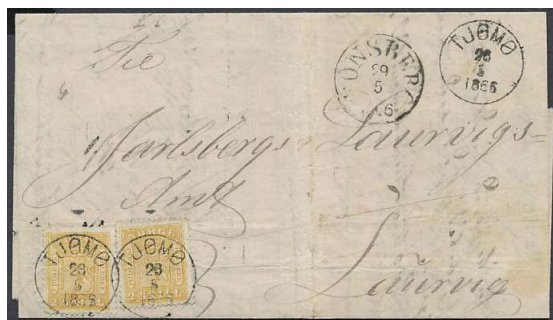 Til
TØNSBERG
29
5
TJØMØ
28
5
1866
Jarlsbergs Laurvigs-
Amt
Laurvig
TJØMØ
28
5
1866
TJØMØ
28
5
1866